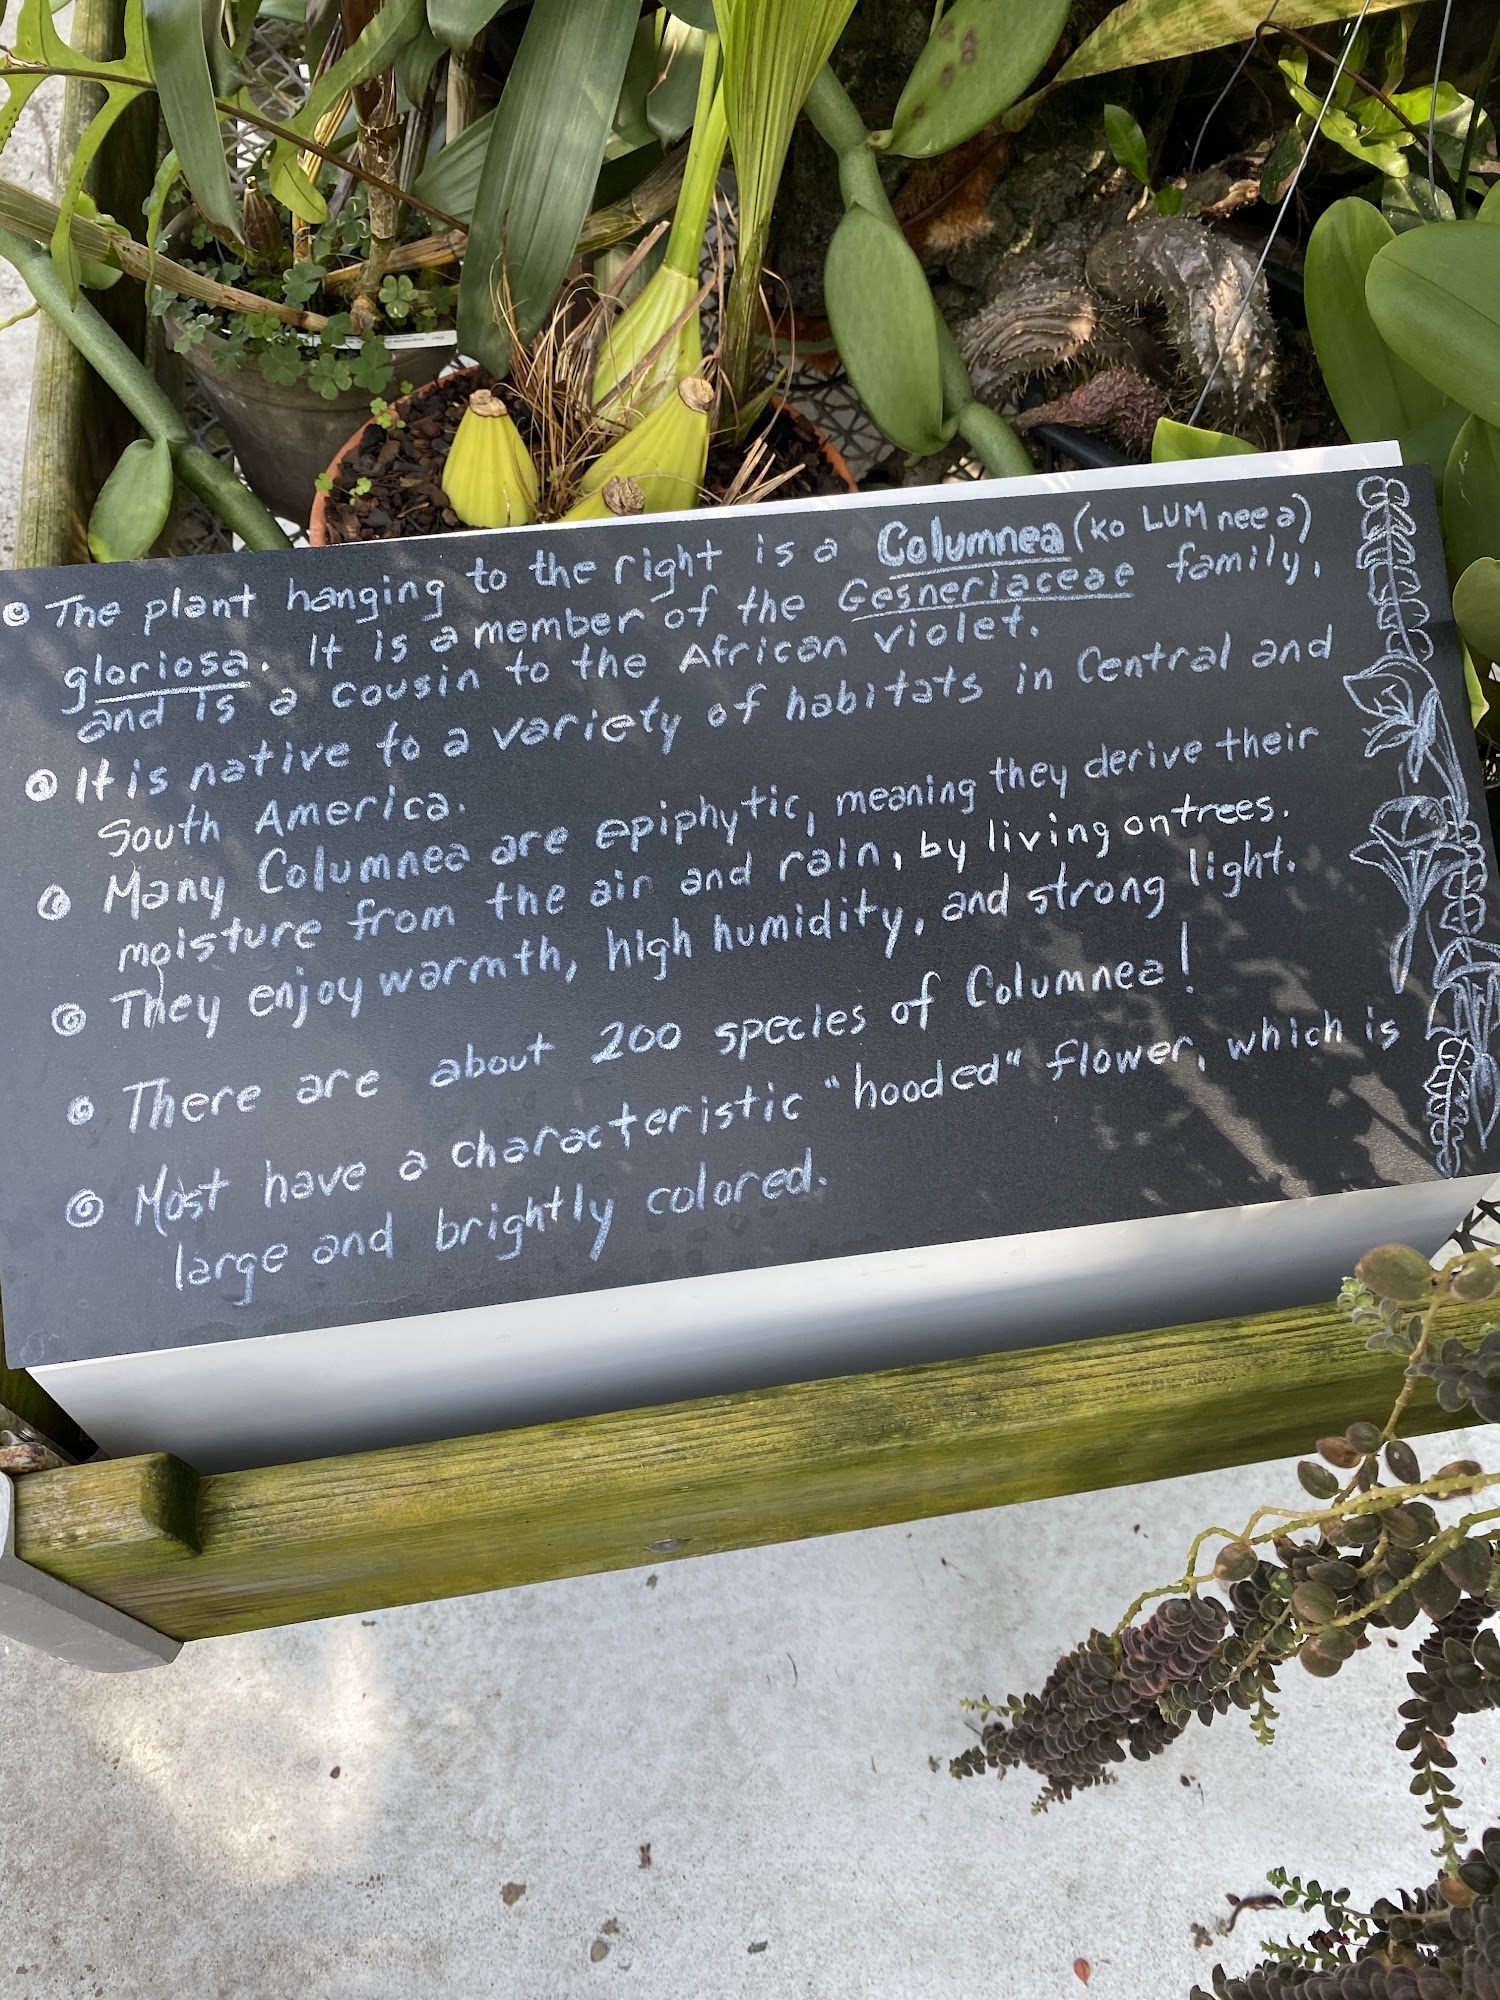 The plant hanging to the right is a Columnea (ko LUM nee a)
gloriosa. It is a member of the Gesneriaceae family,
and is a cousin to the African violet.
It is native to a variety of habitats in Central and
South America.
Many Columnea are epiphytic, meaning they derive their
moisture from the air and rain, by living on trees.
They enjoy warmth, high humidity, and strong light.
There are about 200 species of Columnea!
Most have a characteristic "hooded" flower, which is
large and brightly colored.